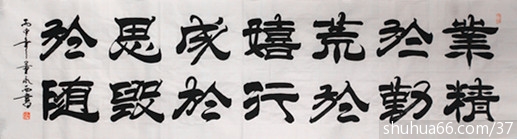 業精
於勤
荒於
嬉行
成於
思毁
於随
丙申年
shuhua66.com/37